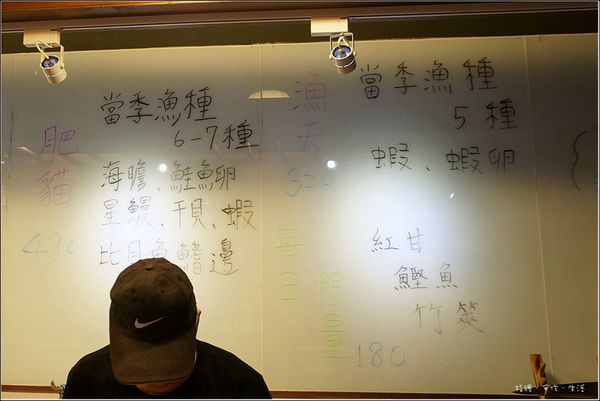 肥貓
480
當季漁種
6-7種
海膽、鮭魚卵
星鰻、干貝、蝦
比目魚鰭邊
漁夫
320
當季漁種
5種
蝦、蝦卵
每日
限量
180
紅甘
鰹魚
竹筴